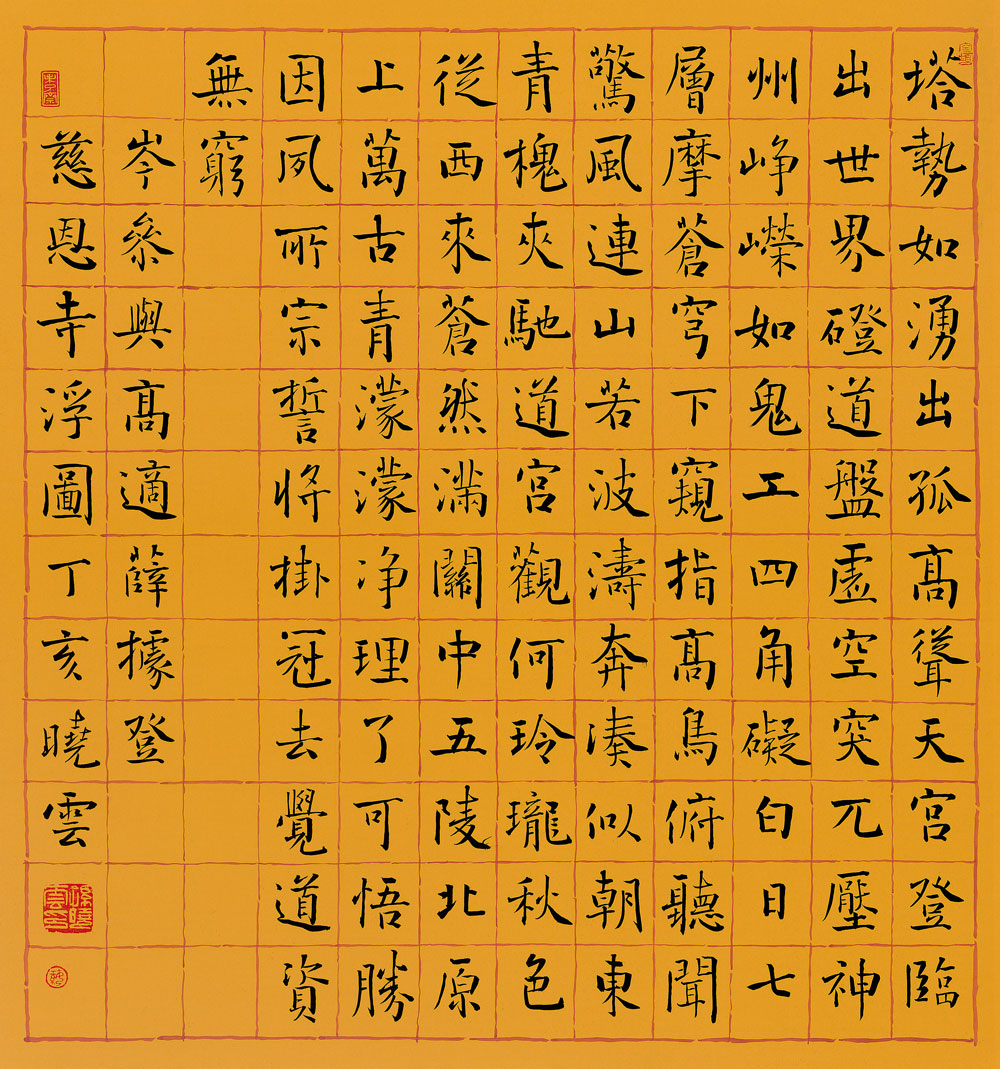 塔勢如湧出孤髙聳天宮登臨
出世界磴道盤虛空突兀壓神
州峥嶸如鬼工四角礙白日七
層摩蒼穹下窺指髙鳥俯聽聞
驚風連山若波濤奔湊似朝東
青槐夾馳道宮觀何玲瓏秋色
從西來蒼然滿關中五陵北原
上萬古青濛濛净理了可悟勝
因夙所宗誓將掛冠去覺道資
無窮
岑參與髙適薛據登
慈恩寺浮圖丁亥曉雲
孫曉雲印